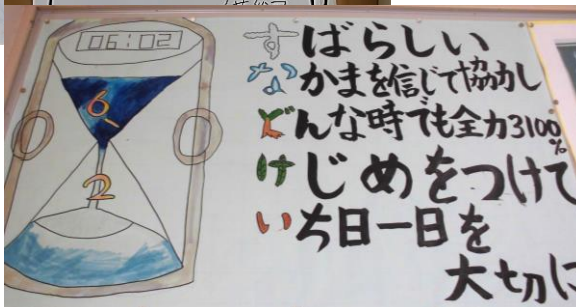 06:02
6
2
すばらしい
なかまを信じて協力し
どんな時でも全力3100%
けじめをつけて
いち日一日を
大切に